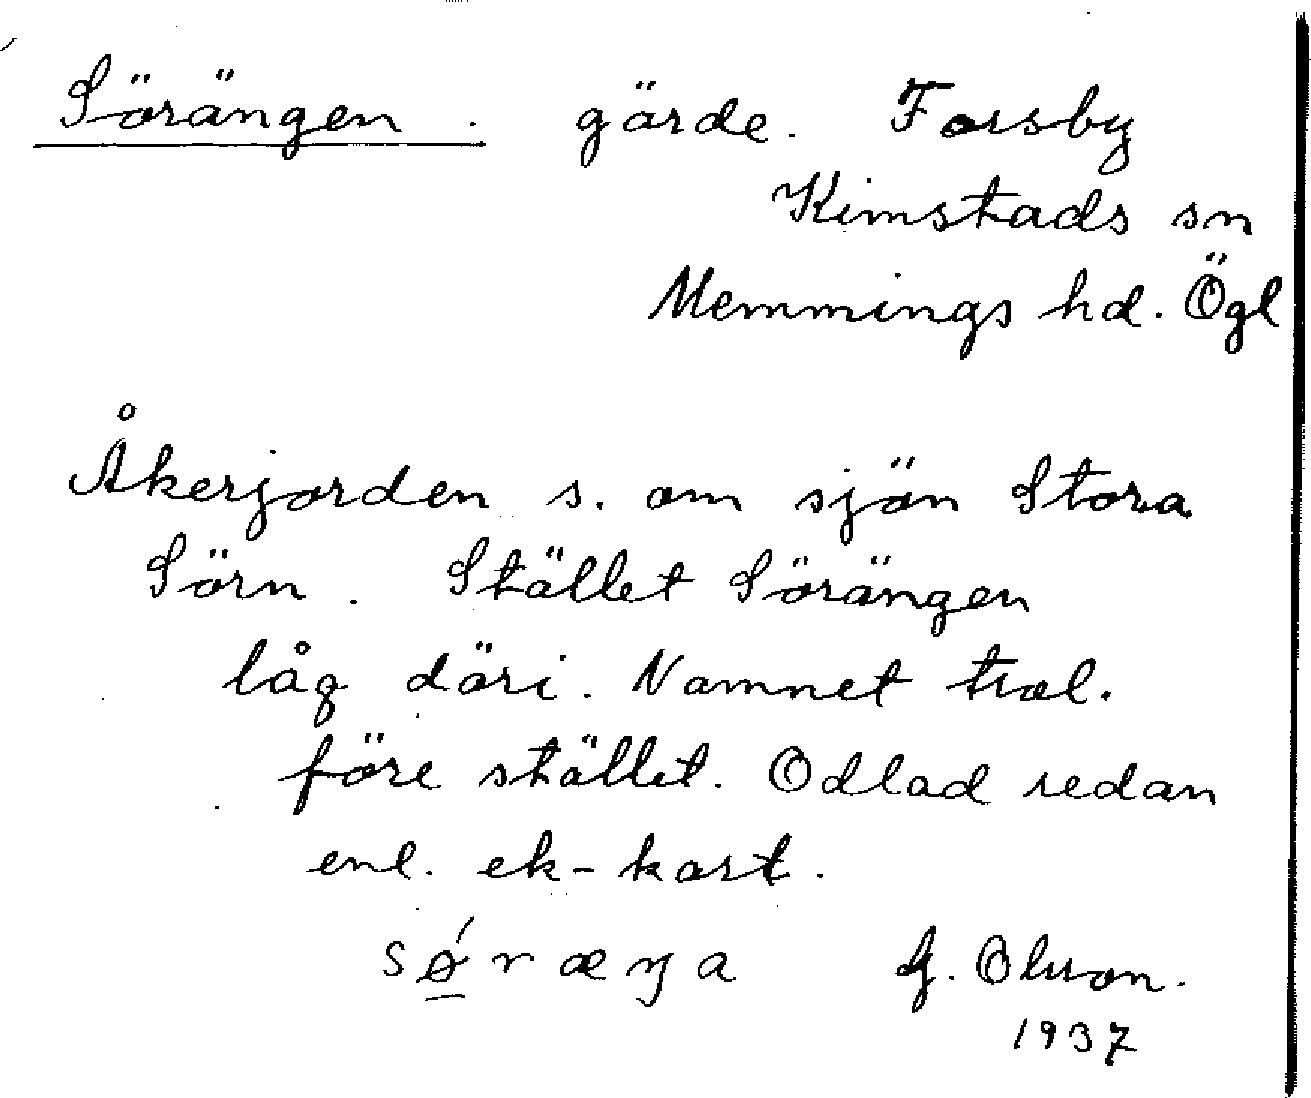 Sörängen. gärde. Forsby
Kimstads sn
Memmings hd. Ögl
Åkerjorden s. om sjön Stora
Sörn. Stället Sörängen
låg däri. Namnet tral.
före stället. Odlad redan
enl. ek-kart.
sǿ̲ræŋa G. Olsson.
1937